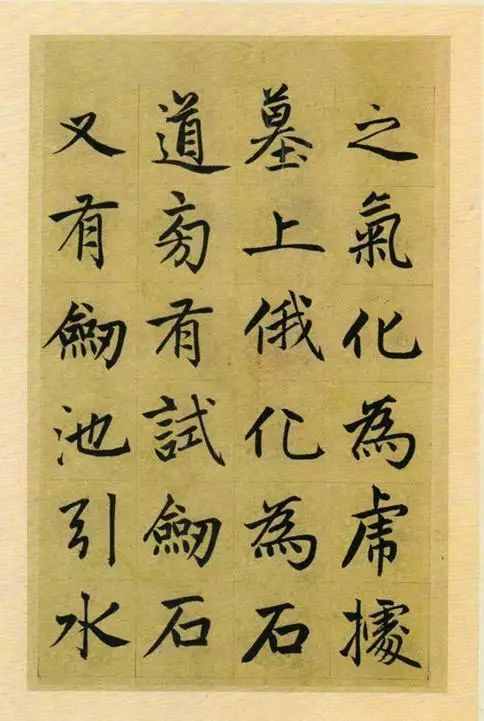 之氣化為虎據
墓上俄化為石
道旁有試劒石
又有劒池引水